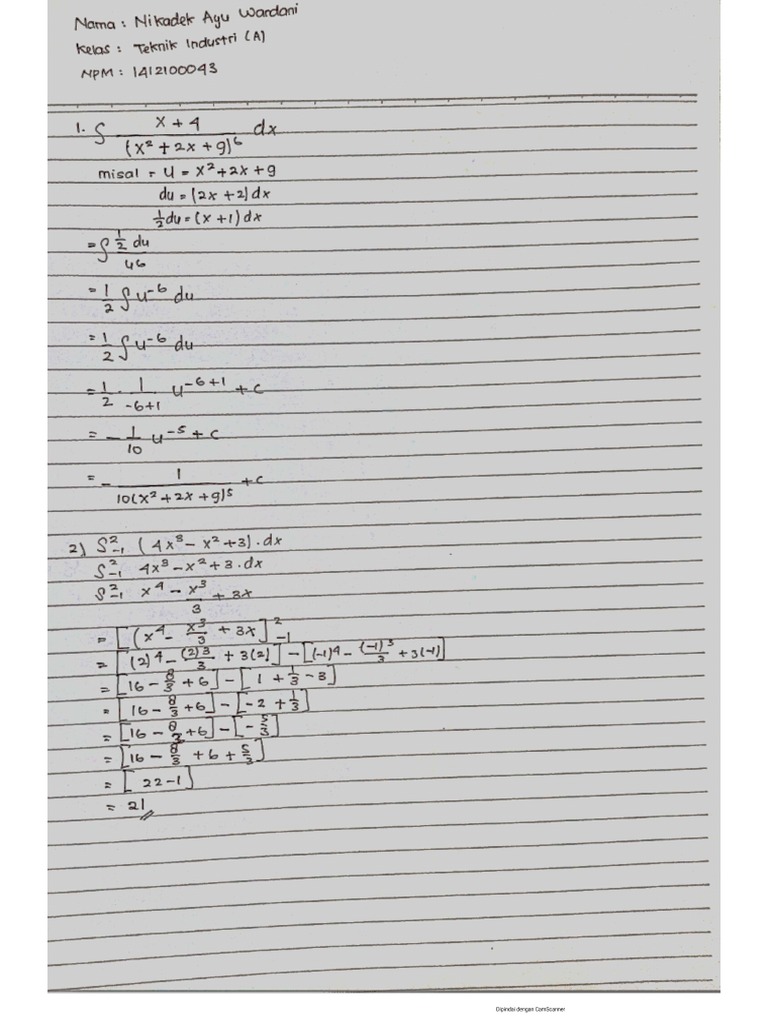 Nama : Nikadek Ayu Wardani
Kelas : Teknik Industri (A)
NPM : 1412100043
1. ∫ x + 4 / (x² + 2x + 9)⁶ dx
misal = u = x² + 2x + 9
du = (2x + 2) dx
½ du = (x + 1) dx
= ∫ ½ du / u6
= 1/2 ∫ u⁻⁶ du
= 1/2 ∫ u⁻⁶ du
= 1/2 · 1/-6+1 u⁻⁶⁺¹ + c
= - 1/10 u⁻⁵ + c
= - 1 / 10(x² + 2x + 9)⁵ + c
2) ∫²₋₁ (4x³ - x² + 3) . dx
∫²₋₁ 4x³ - x² + 3 . dx
∫²₋₁ x⁴ - x³/3 + 3x
= [(x⁴ - x³/3 + 3x]²₋₁
= [(2)⁴ - (2)³/3 + 3(2)] - [(-1)⁴ - (-1)³/3 + 3(-1)]
= [16 - 8/3 + 6] - [1 + 1/3 - 3]
= [16 - 8/3 + 6] - [-2 + 1/3]
= [16 - 8/3 + 6] - [- 5/3]
= [16 - 8/3 + 6 + 5/3]
= [22 - 1]
= 21
Dipindai dengan CamScanner